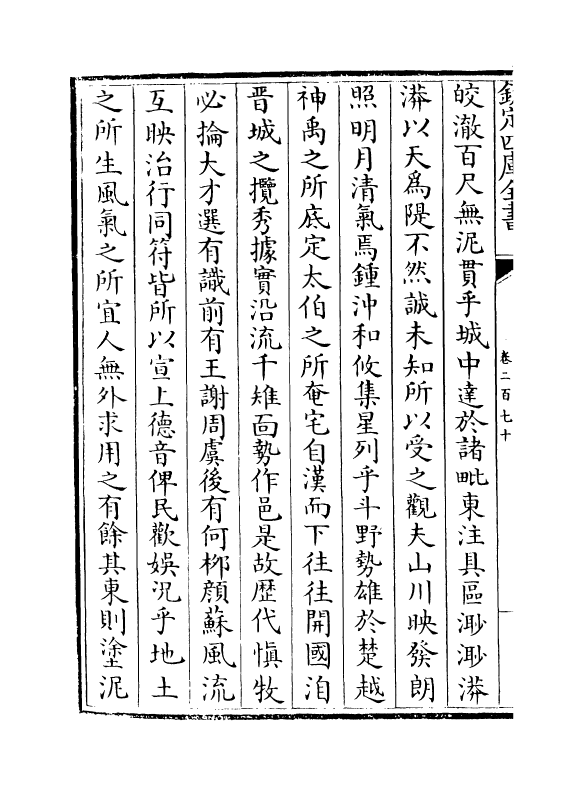 欽定四庫全書
卷二百七十
皎澈百尺無泥貫乎城中達於諸毗東注具區渺渺漭
漭以天為隄不然誠未知所以受之觀夫山川映發朗
照明月清氣焉鍾沖和攸集星列乎斗野勢雄於楚越
神禹之所底定太伯之所奄宅自漢而下往往開國洎
晋城之攬秀據實沿流千雉面勢作邑是故歴代慎牧
必掄大才選有識前有王謝周虞後有何栁顔蘇風流
互映治行同符皆所以宣上德音俾民歡娛况乎地土
之所生風氣之所宜人無外求用之有餘其東則塗泥